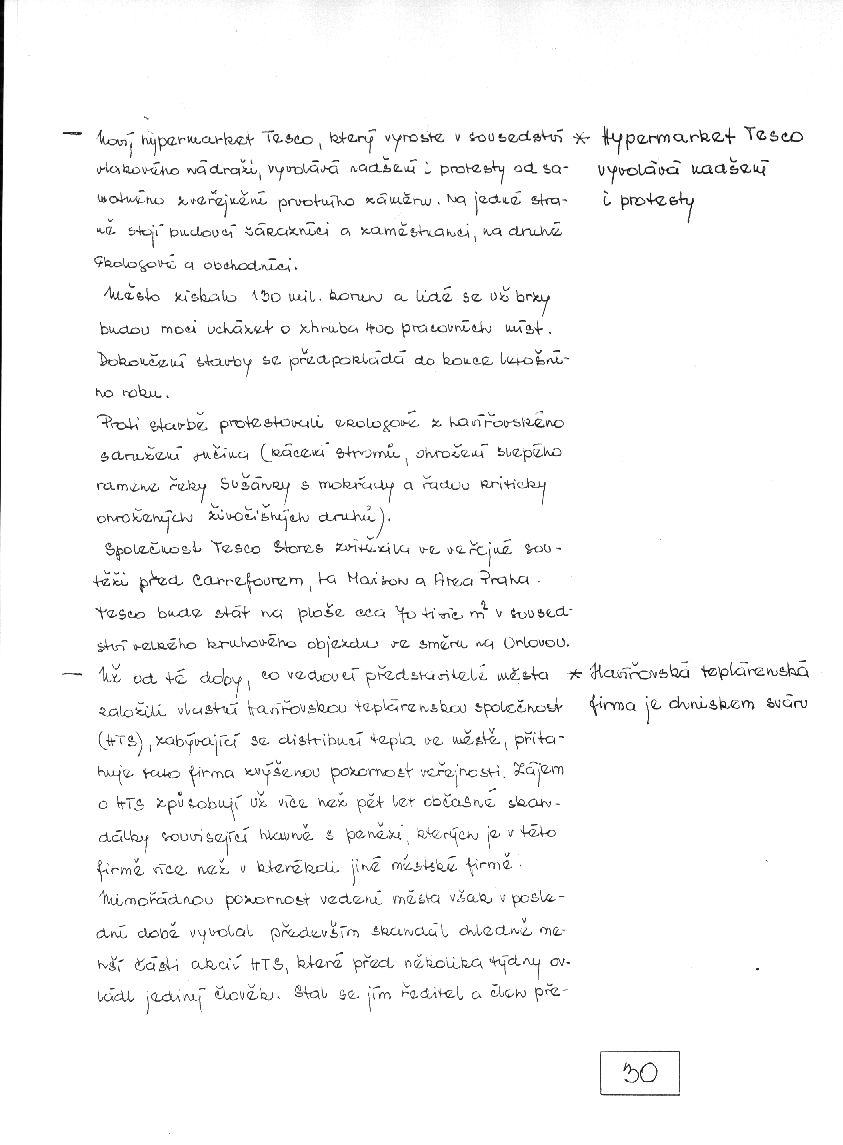 — Nový hypermarket Tesco, který vyroste v sousedství * Hypermarket Tesco
vlakového nádraží, vyvolává nadšení i protesty od sa- vyvolává nadšení
motného zveřejnění prvotního záměru. Na jedné stra- i protesty
ně stojí budoucí zákazníci a zaměstnanci, na druhé
ekologové a obchodníci.
Město získalo 130 mil. korun a lidé se už brzy
budou moci ucházet o zhruba 400 pracovních míst.
Dokončení stavby se předpokládá do konce letošní-
ho roku.
Proti stavbě protestovali ekologové z havířovského
sdružení Jučina (kácení stromů, ohrožení slepého
ramene řeky Sušanky s mokřady a řadou kriticky
ohrožených živočišných druhů).
Společnost Tesco Stores zvítězila ve veřejné sou-
těži před Carrefourem, ta Marison a Area Praha.
Tesco bude stát na ploše cca 40 tisíc m² v soused-
ství velkého kruhového objezdu ve směru na Orlovou.
— Už od té doby, co vedoucí představitelé města * Havířovská teplárenská
založili vlastní Havířovskou teplárenskou společnost firma je ohniskem sváru
(HTS), zabývající se distribucí tepla ve městě, přita-
huje tato firma zvýšenou pozornost veřejnosti. Zájem
o HTS způsobují už více než pět let občasné skan-
dálky související hlavně s penězi, kterých je v této
firmě více než v kterékoli jiné městské firmě.
Mimořádnou pozornost vedení města však v posle-
dní době vyvolal především skandál ohledně me-
nší části akcií HTS, které před několika týdny ov-
ládl jediný člověk. Stal se jím ředitel a člen pře-
30